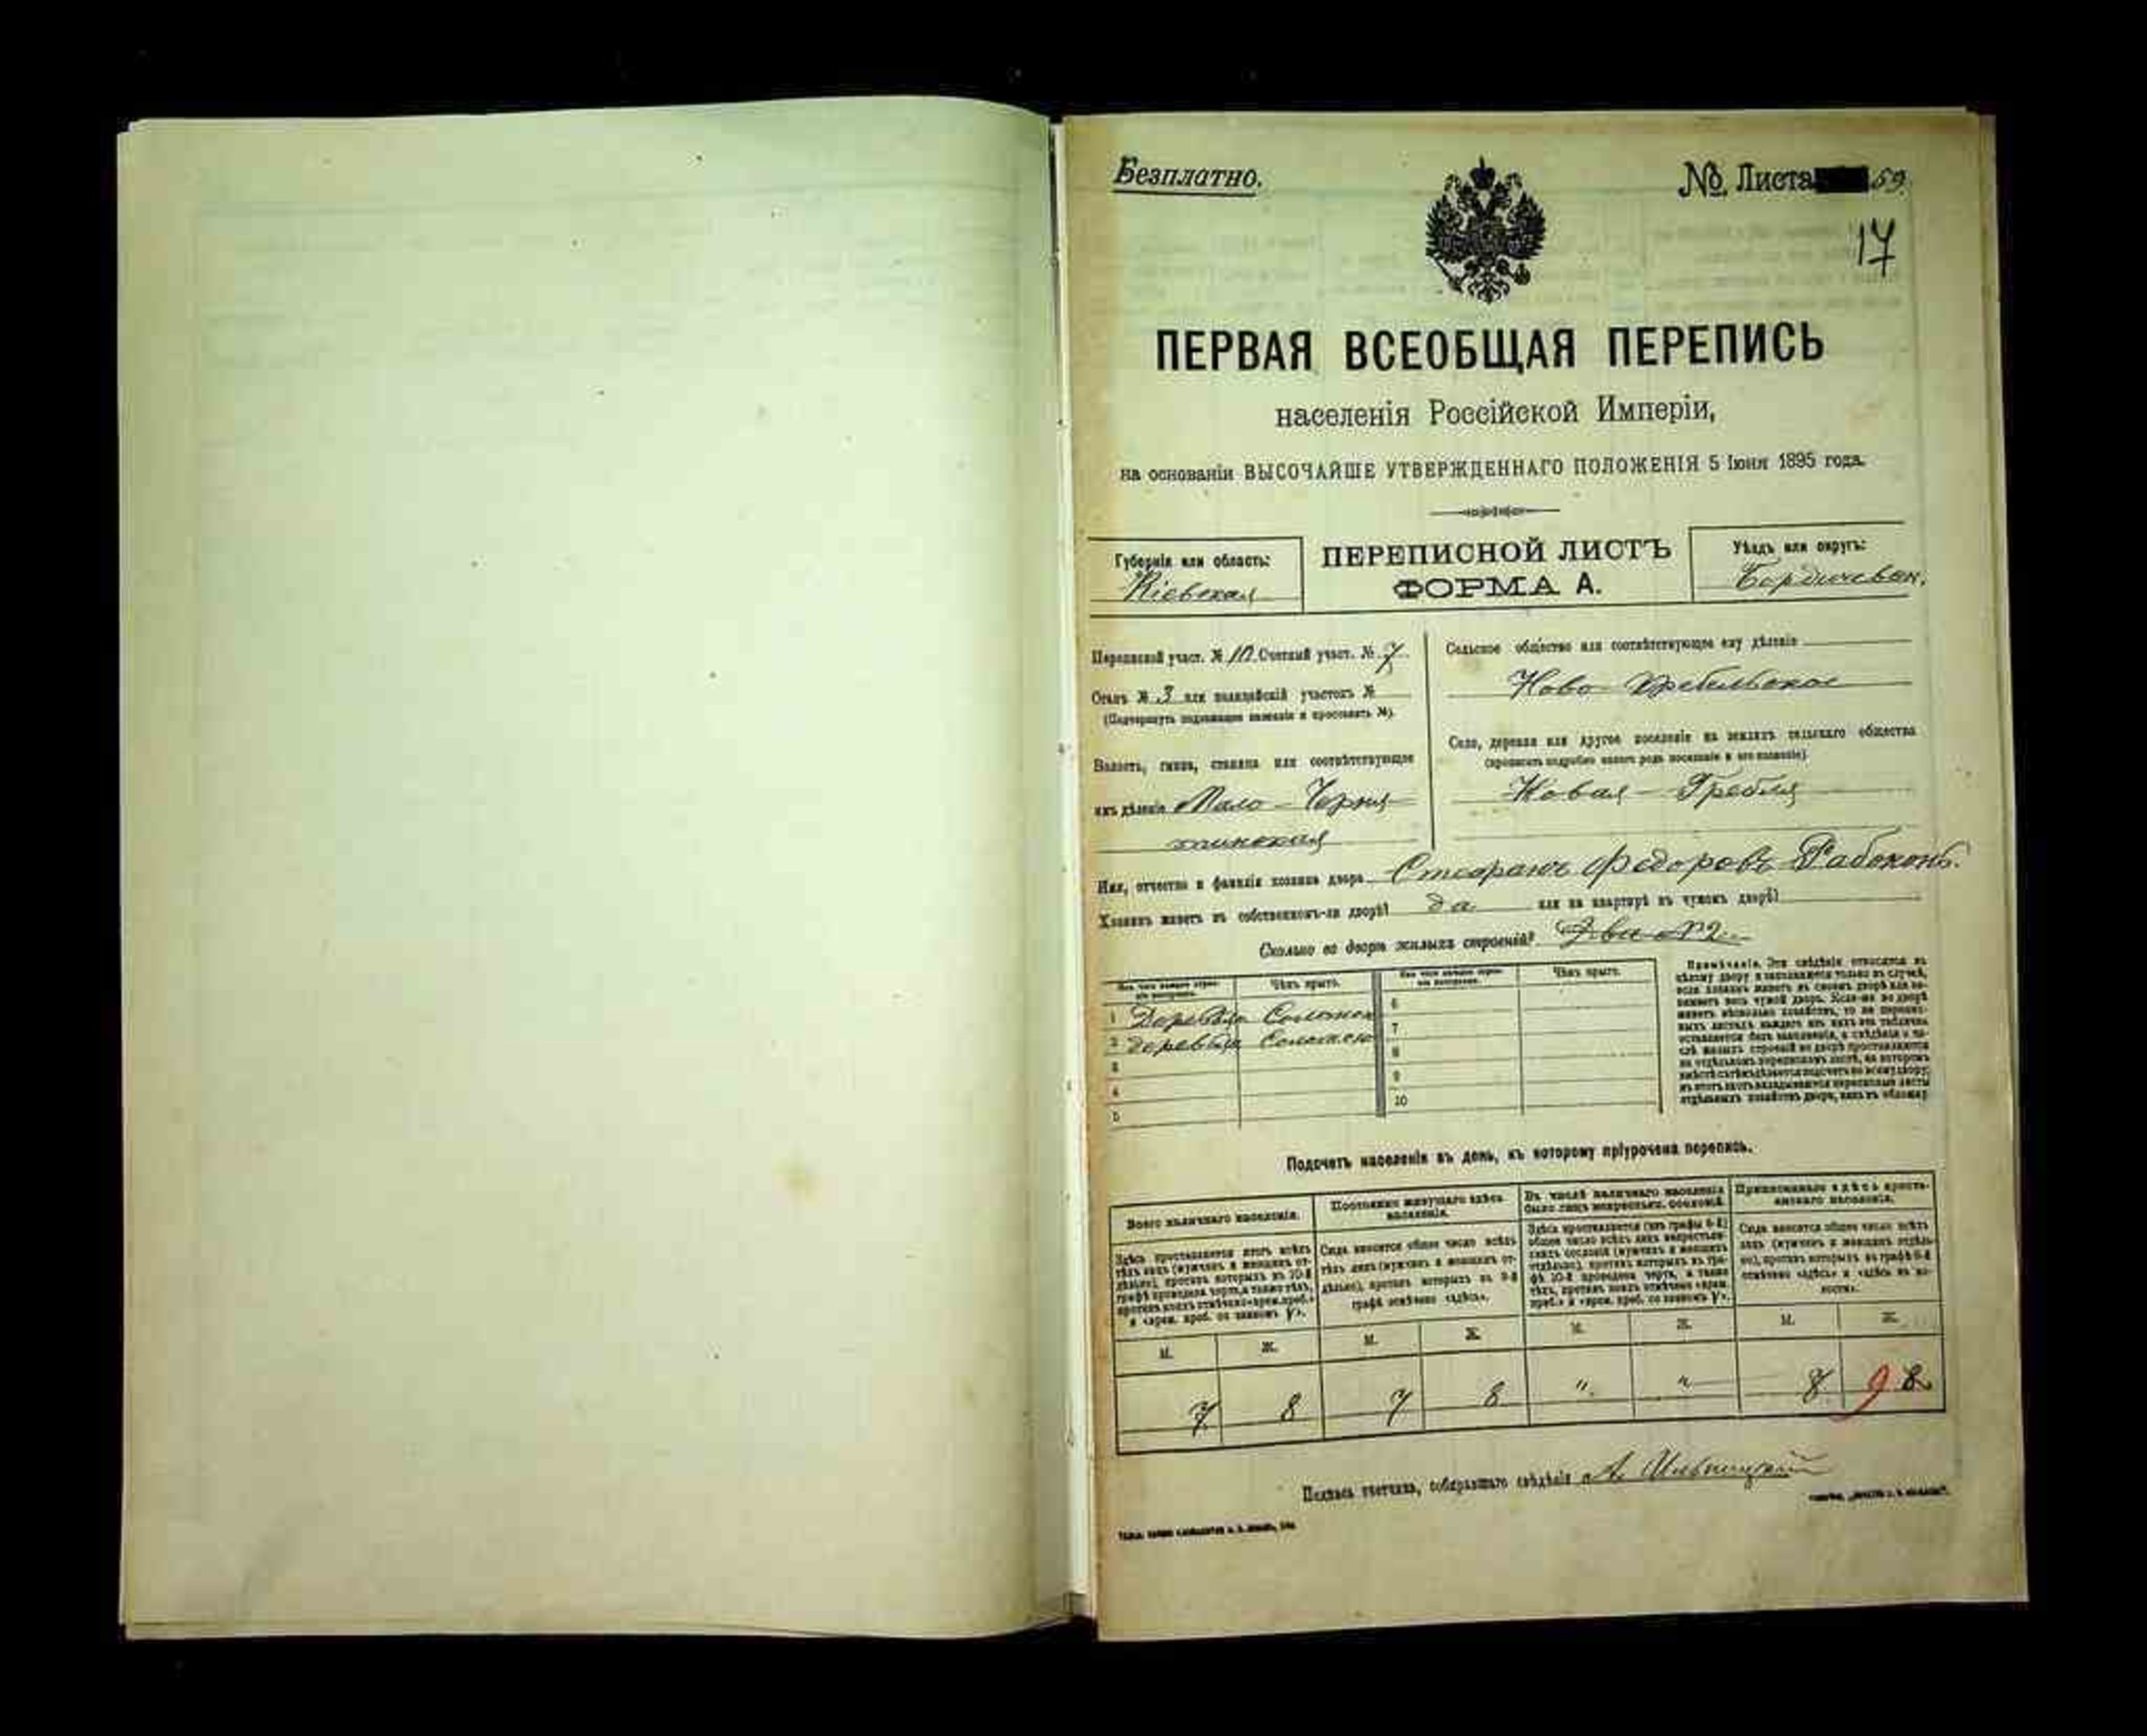 Безплатно.
№ Листа 59.
17
ПЕРВАЯ ВСЕОБЩАЯ ПЕРЕПИСЬ
населенія Россійской Имперіи,
на основаніи ВЫСОЧАЙШЕ УТВЕРЖДЕННАГО ПОЛОЖЕНІЯ 5 Іюня 1895 года.
Губернія или область:
Кіевская
ПЕРЕПИСНОЙ ЛИСТЪ
ФОРМА А.
Уѣздъ или округъ:
Бердичевск.
Переписной участ. № 10. Счетный участ. № 7
Станъ № 3 или полицейскій участокъ №
(Подчеркнуть подлежащее названіе и проставить №).
Волость, гмина, станица или соотвѣтствующее
имъ дѣленіе Мало-Черня-
тинская
Сельское общество или соотвѣтствующее ему дѣленіе
Ново-
Село, деревня или другое поселеніе на земляхъ сельскаго общества
(прописать подробно какого рода поселеніе и его названіе)
Новая-Гребля
Имя, отчество и фамилія хозяина двора Федоровъ Рабоконь.
Хозяинъ живетъ въ собственномъ-ли дворѣ? да или на квартирѣ въ чужомъ дворѣ?
Сколько во дворѣ жилыхъ строеній? Два №2
Изъ чего каждое строеніе построено. Чѣмъ крыто. Изъ чего каждое строеніе построено. Чѣмъ крыто.
1 Соломой 6
2 Соломою 7
3 8
4 9
5 10
Примѣчаніе. Эти свѣдѣнія относятся къ
цѣлому двору и заполняются только въ случаѣ,
если хозяинъ живетъ въ своемъ дворѣ или за-
нимаетъ весь чужой дворъ. Если-же во дворѣ
живетъ нѣсколько хозяйствъ, то на переписныхъ
листахъ каждаго изъ нихъ эта табличка
оставляется безъ заполненія, а свѣдѣнія о чи-
слѣ жилыхъ строеній во дворѣ проставляются
на отдѣльномъ переписномъ листѣ, на которомъ
вмѣстѣ съ тѣмъ дѣлается подсчетъ по всему двору;
въ этотъ листъ вкладываются переписные листы
отдѣльныхъ хозяйствъ двора, какъ въ обложку
Подсчетъ населенія въ день, къ которому пріурочена перепись.
Всего наличнаго населенія.
Здѣсь проставляется итогъ всѣхъ
тѣхъ лицъ (мужчинъ и женщинъ от-
дѣльно), противъ которыхъ въ 10-й
графѣ проведена черта, а также тѣхъ,
противъ коихъ отмѣчено «врем. преб.»
и «врем. преб. со знакомъ V».
Постоянно живущаго здѣсь
населенія.
Сюда вносится общее число всѣхъ
тѣхъ лицъ (мужчинъ и женщинъ от-
дѣльно), противъ которыхъ въ 9-й
графѣ отмѣчено «здѣсь».
Въ числѣ наличнаго населенія
было лицъ некрестьян. сословій.
Здѣсь проставляется (изъ графы 6-й)
общее число всѣхъ лицъ некрестьян-
скихъ сословій (мужчинъ и женщинъ
отдѣльно), противъ которыхъ въ гра-
фѣ 10-й проведена черта, а также
тѣхъ, противъ коихъ отмѣчено «врем.
преб.» и «врем. преб. со знакомъ V».
Приписаннаго здѣсь кресть-
янскаго населенія.
Сюда вносится общее число всѣхъ
лицъ (мужчинъ и женщинъ отдѣль-
но), противъ которыхъ въ графѣ 8-й
отмѣчено «здѣсь» и «здѣсь въ во-
лости».
М. Ж. М. Ж. М. Ж. М. Ж.
7 8 7 8 " " 8 9 8
Подпись счетчика, собиравшаго свѣдѣнія А.